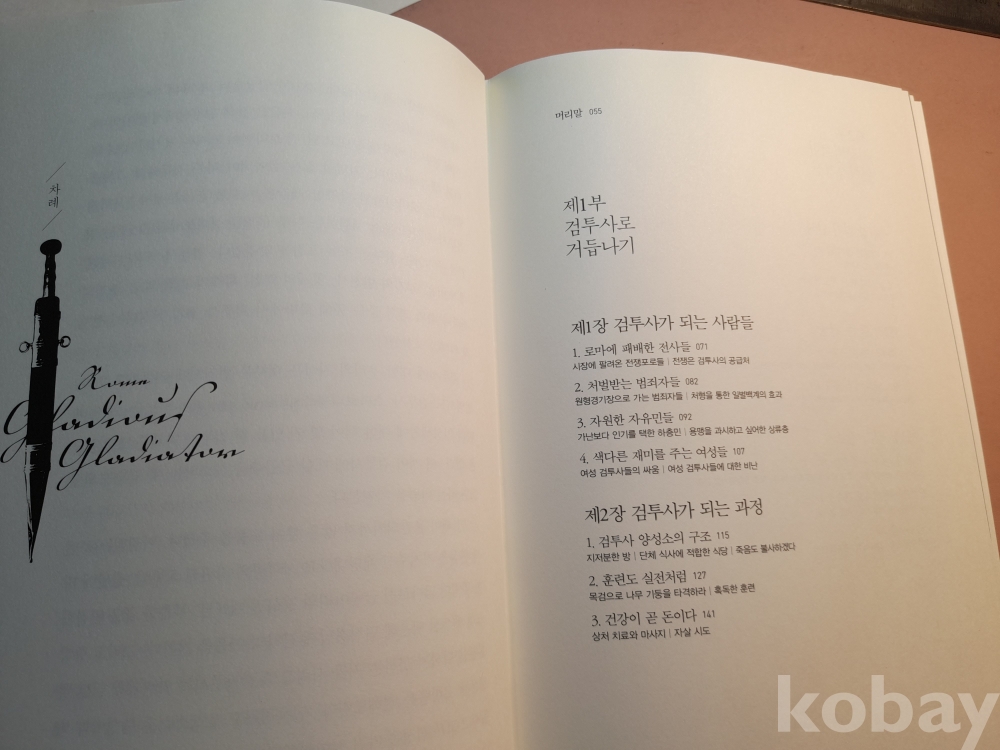 차례
Rome
Gladious
Gladiator
머리말 055
제1부
검투사로
거듭나기
제1장 검투사가 되는 사람들
1. 로마에 패배한 전사들 071
시장에 팔려온 전쟁포로들 | 전쟁은 검투사의 공급처
2. 처벌받는 범죄자들 082
원형경기장으로 가는 범죄자들 | 처형을 통한 일벌백계의 효과
3. 자원한 자유민들 092
가난보다 인기를 택한 하층민 | 용맹을 과시하고 싶어한 상류층
4. 색다른 재미를 주는 여성들 107
여성 검투사들의 싸움 | 여성 검투사들에 대한 비난
제2장 검투사가 되는 과정
1. 검투사 양성소의 구조 115
지저분한 방 | 단체 식사에 적합한 식당 | 죽음도 불사하겠다
2. 훈련도 실전처럼 127
목검으로 나무 기둥을 타격하라 | 혹독한 훈련
3. 건강이 곧 돈이다 141
상처 치료와 마사지 | 자살 시도
kobay